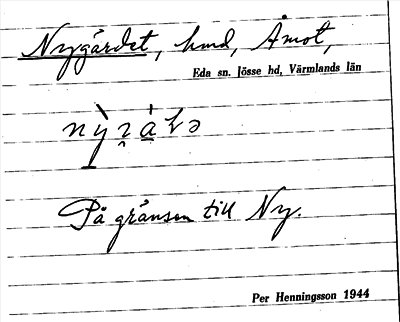 Nygårdet, hmd, Åmot,
Eda sn. Jösse hd, Värmlands län
På gränsen till Ny.
Per Henningsson 1944